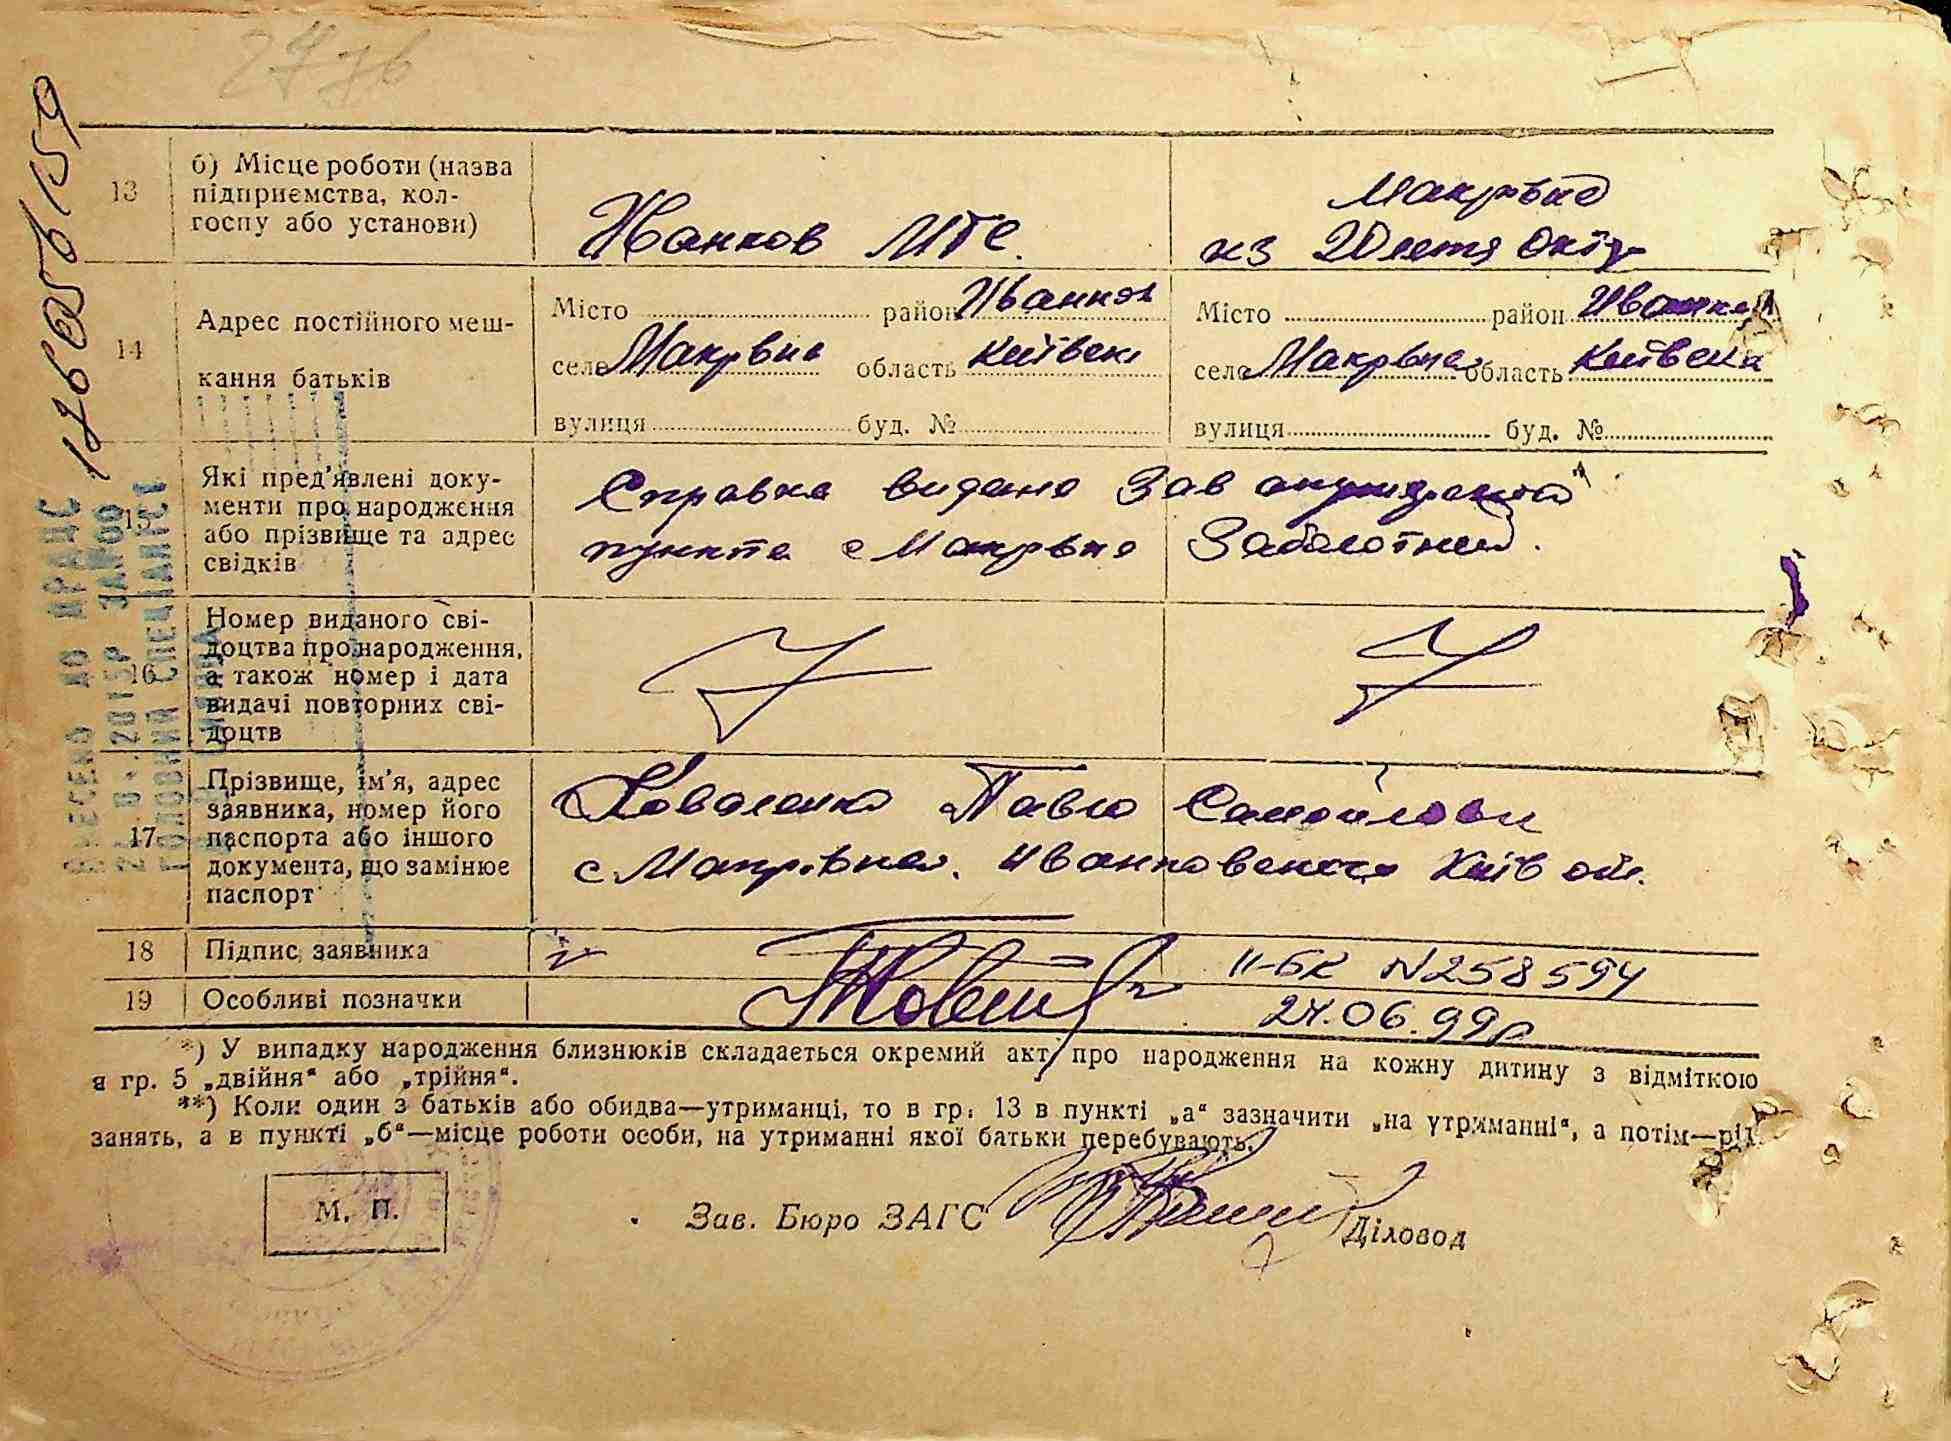 17605561159
13
б) Місце роботи (назва
підприємства, кол-
госпу або установи)
Іванков МТС.
Макрівка
кз 20 летя Октр
14
Адрес постійного меш-
кання батьків
Місто район Іванков
село Макрівка область Київськ
вулиця буд. №
Місто район Іванков
село Макрівка область Київська
вулиця буд. №
15
Які пред'явлені доку-
менти про народження
або прізвище та адрес
свідків
Справка видана Зав
пункта с Макрівка Заболотний.
16
Номер виданого сві-
доцтва про народження,
а також номер і дата
видачі повторних сві-
доцтв
17
Прізвище, ім'я, адрес
заявника, номер його
паспорта або іншого
документа, що замінює
паспорт
Коваленко Павло Самойлович
с Макрівка. Иванковского Київ обл.
18
Підпис заявника
II-БК N258594
19
Особливі позначки
24.06.99р
*) У випадку народження близнюків складається окремий акт про народження на кожну дитину з відміткою
в гр. 5 „двійня“ або „трійня“.
**) Коли один з батьків або обидва—утриманці, то в гр. 13 в пункті „а“ зазначити „на утриманні“, а потім—рід
занять, а в пункті „б“—місце роботи особи, на утриманні якої батьки перебувають.
М. П.
Зав. Бюро ЗАГС
Діловод
ВНЕСЕНО ДО ДРАЦС
ГОЛОВНИЙ СПЕЦІАЛІСТ